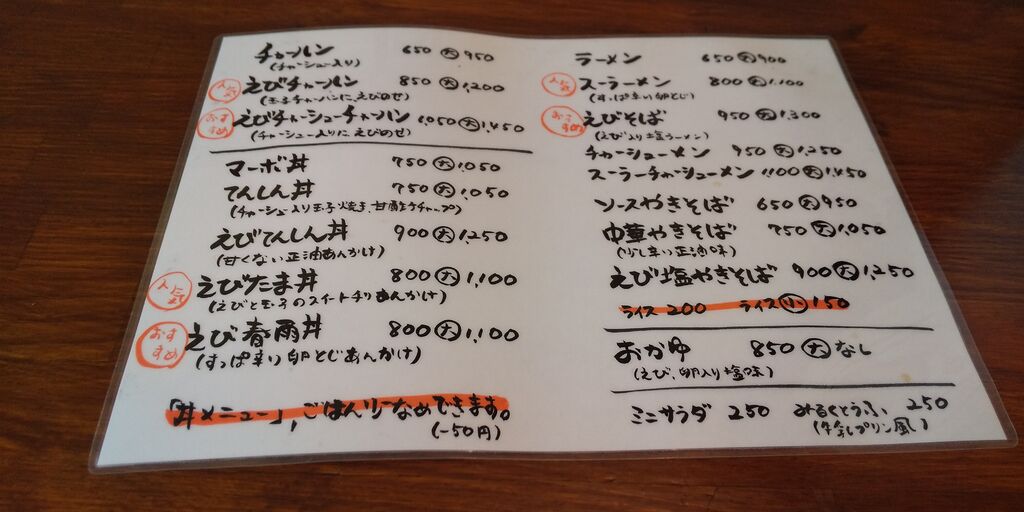 チャーハン 650 大 950
(チャーシュー入り)
人気 えびチャーハン 850 大 1,200
(玉子チャーハンに、えびのせ)
おすすめ えびチャーシューチャーハン 1,050 大 1,450
(チャーシュー入りに えびのせ)
マーボ丼 750 大 1,050
てんしん丼 750 大 1,050
(チャーシュー入り玉子焼き、甘酢ケチャップ)
えびてんしん丼 900 大 1,250
(甘くない正油あんかけ)
人気 えびたま丼 800 大 1,100
(えびと玉子のスイートチリあんかけ)
おすすめ えび春雨丼 800 大 1,100
(すっぱ辛い卵とじあんかけ)
「丼メニュー」、ごはん少なめできます。
(-50円)
ラーメン 650 大 900
人気 スーラーメン 800 大 1,100
(すっぱ辛い卵とじ)
おすすめ えびそば 950 大 1,300
(えび入り塩ラーメン)
チャーシューメン 950 大 1,250
スーラーチャーシューメン 1,100 大 1,450
ソースやきそば 650 大 950
中華やきそば 750 大 1,050
(少し辛い正油味)
えび塩やきそば 900 大 1,250
ライス 200 ライス 小 150
おかゆ 850 大 なし
(えび、卵入り塩味)
ミニサラダ 250 みるくとうふ 250
(牛乳プリン風)